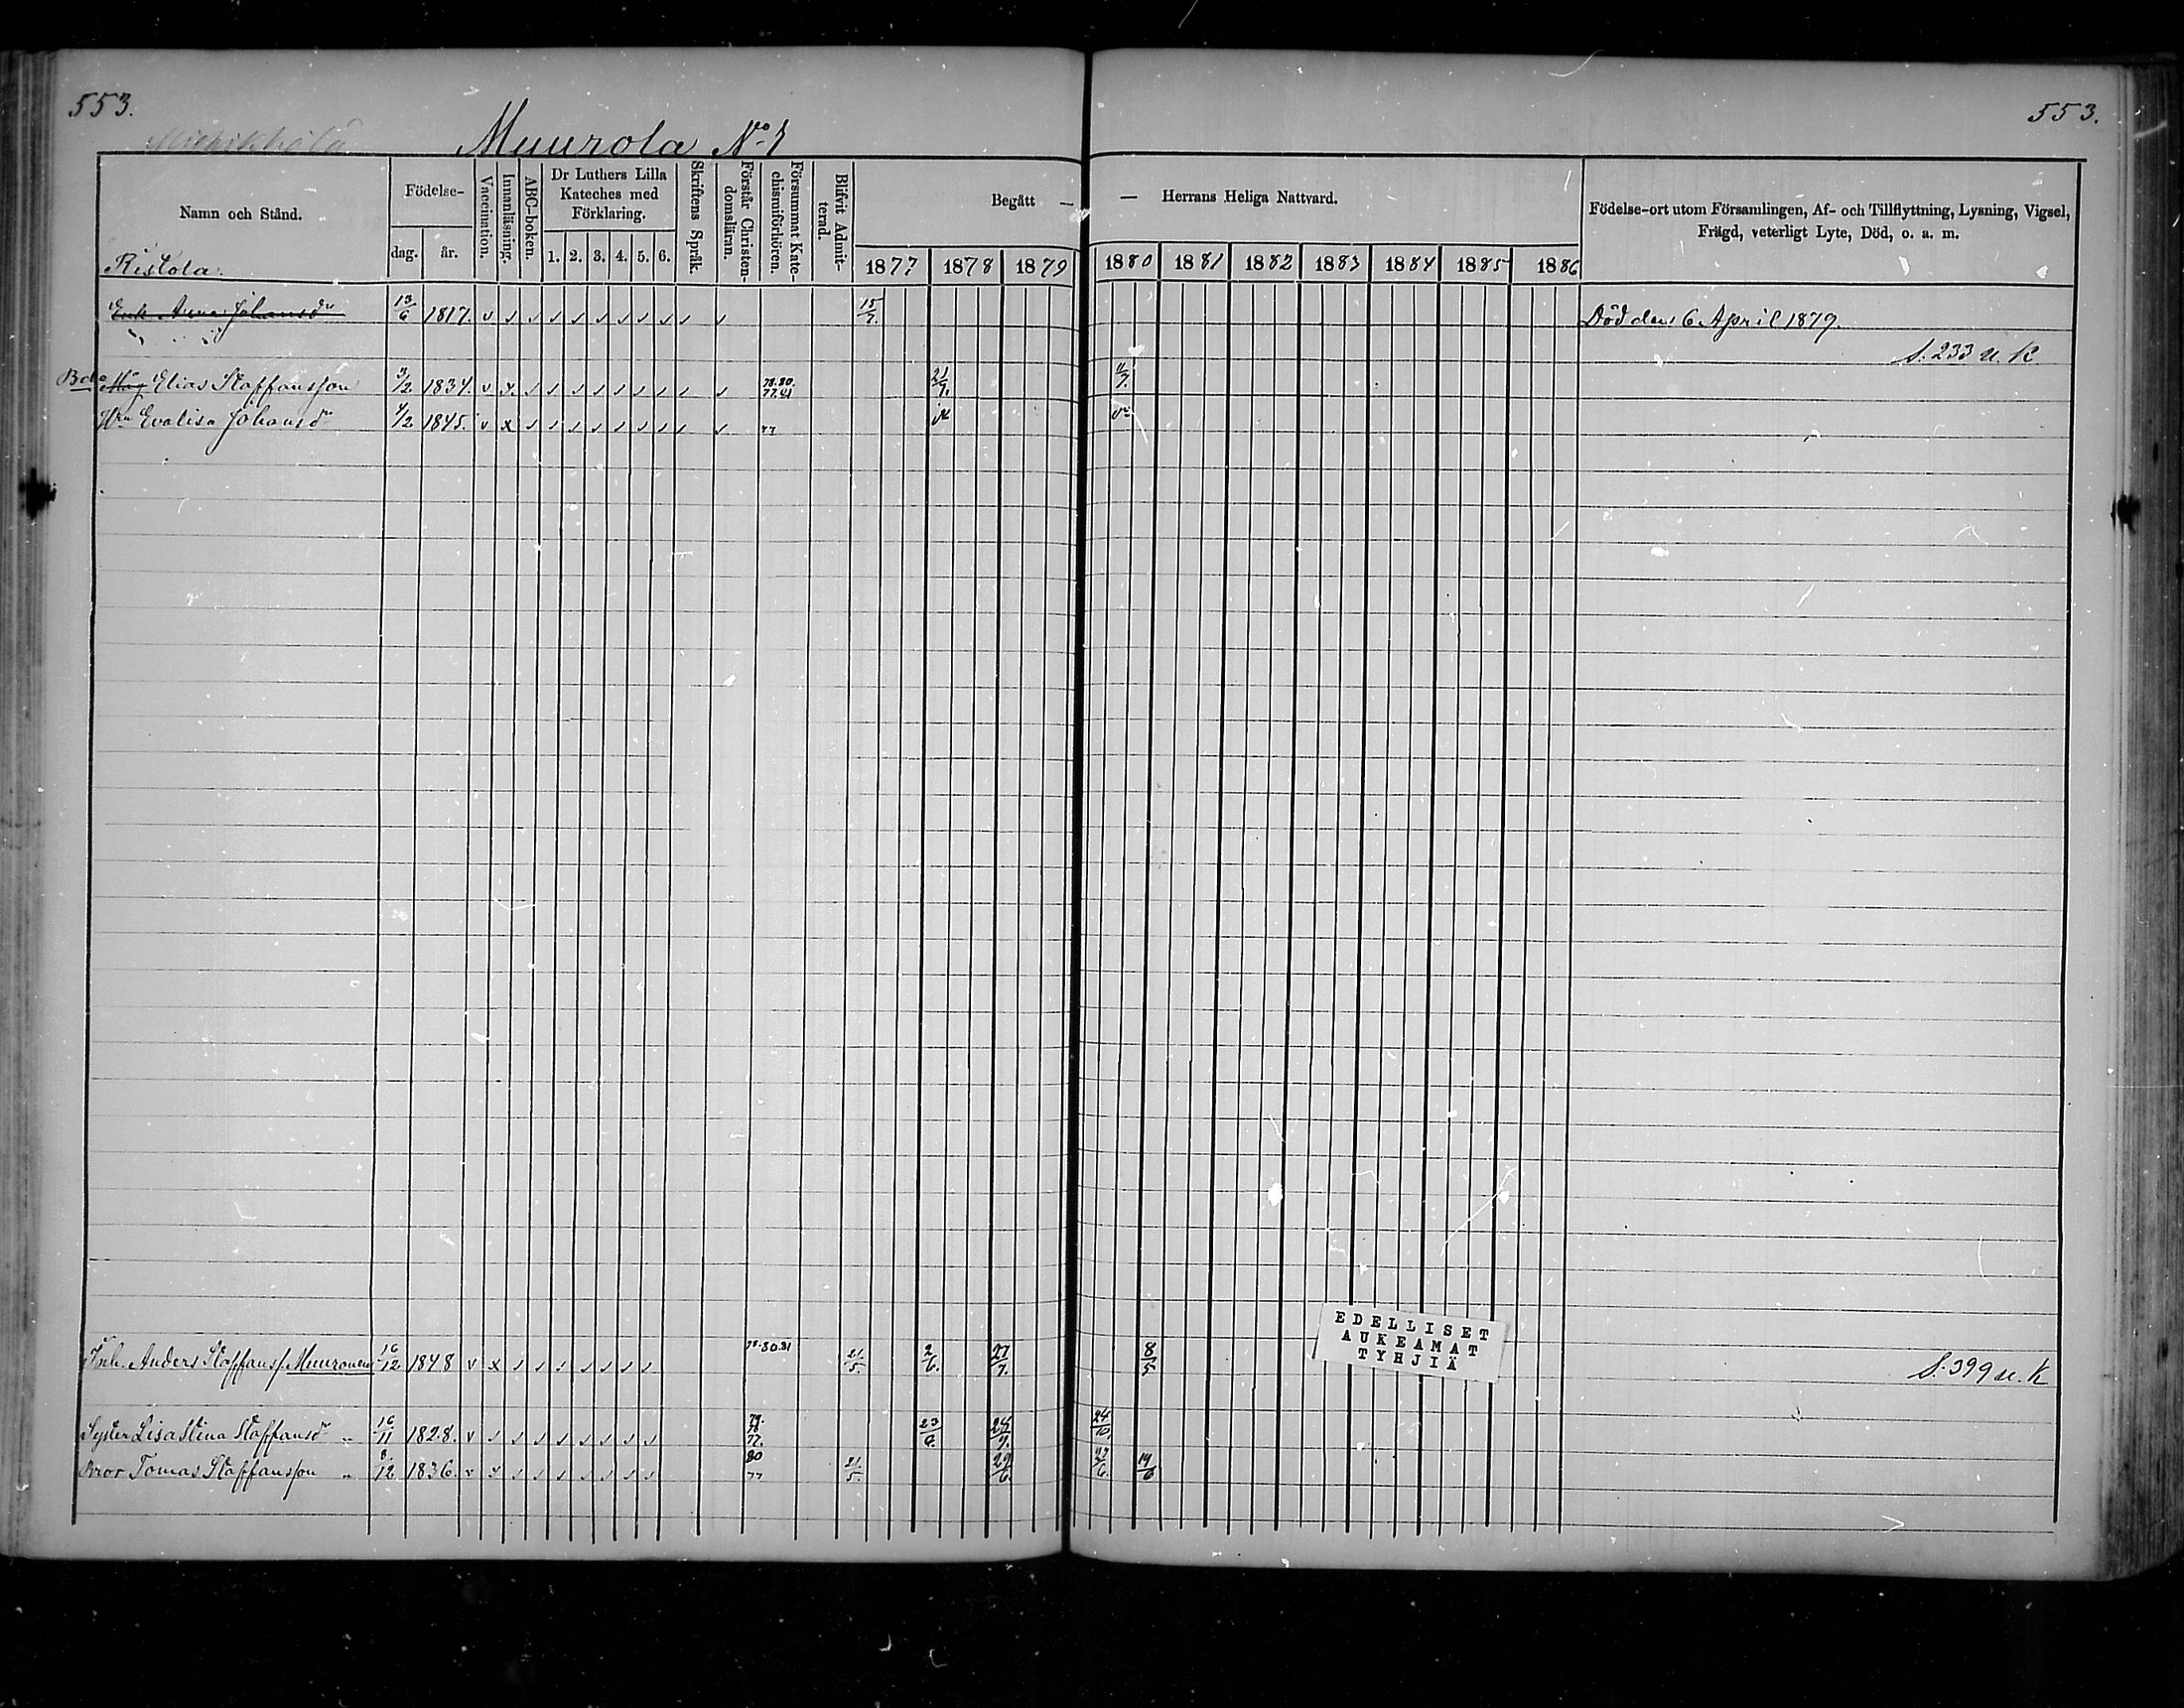 553.
553.
Muurola No 1
Namn och Stånd.
Ristola.
Födelse-
dag.
år.
Vaccination.
Innanläsning.
ABC-boken.
Dr Luthers Lilla
Kateches med
Förklaring.
1. 2. 3. 4. 5. 6.
Skriftens Språk.
Förstår Christen-
domsläran.
Försummat Kate-
chismiförhören.
Blifvit Admit-
terad.
Begått —
— Herrans Heliga Nattvard.
1877 1878 1879 1880 1881 1882 1883 1884 1885 1886
Födelse-ort utom Församlingen, Af- och Tillflyttning, Lysning, Vigsel,
Frägd, veterligt Lyte, Död, o. a. m.
Enk. Anna Johansdr 13/6 1817. 15/7. Död den 6 April 1879.
S. 233 n. K.
Elias Staffansson 3/2 1834. 78.80. 77.81 21/7. 11/7.
Hu Evalisa Johansdr 4/2 1845. 77
EDELLISET
AUKEAMAT
TYHJIÄ
Inh. Anders Staffanss. Muuronen 16/12 1848 78.80.81 21/5. 2/6. 27/7. 8/5 S. 399 n. K
Syster Lisa Stina Staffansdr „ 16/11 1828. 79. 78 77. 23/9. 28/7. 24/10.
Bror Tomas Staffansson „ 8/12 1836. 80 77 21/5. 29/6. 27/6. 19/6